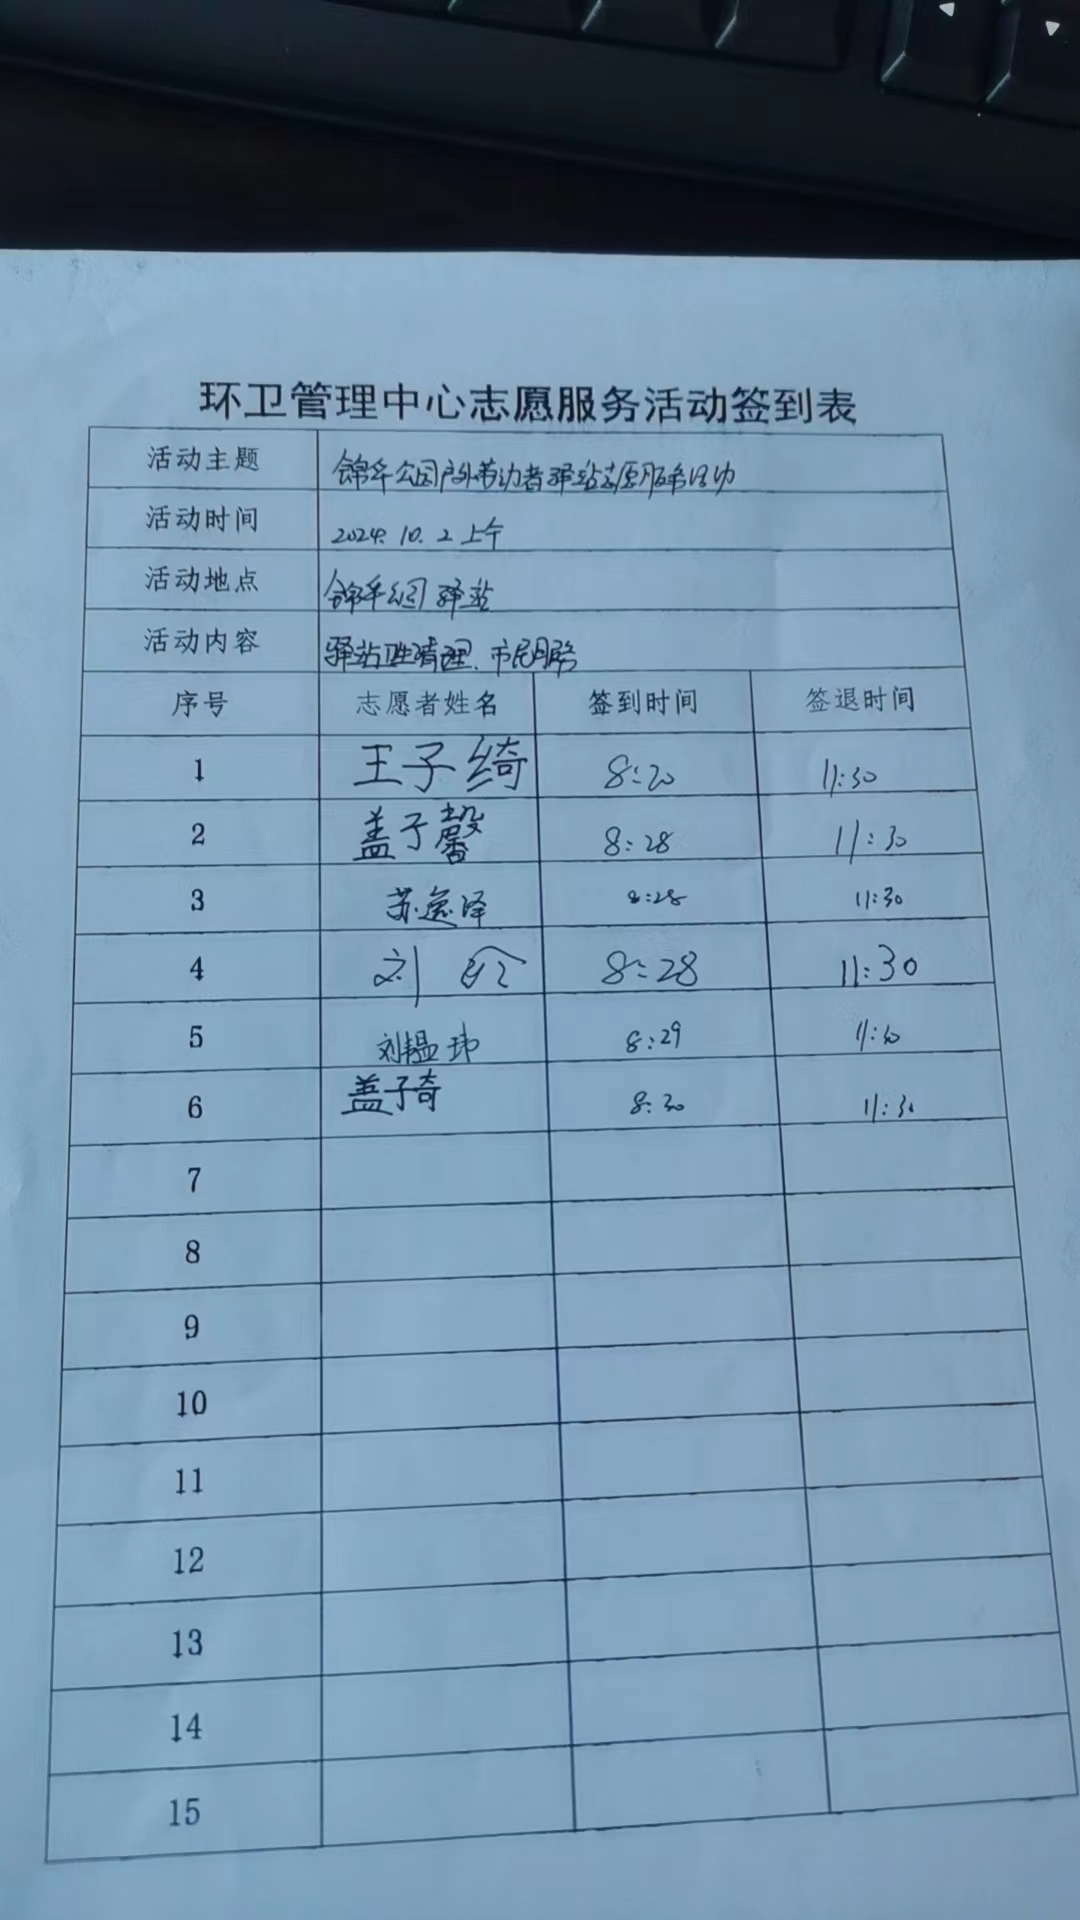 环卫管理中心志愿服务活动签到表
活动主题 锦华公园户外劳动者驿站志愿服务活动
活动时间 2024.10.2上午
活动地点 锦华公园驿站
活动内容 驿站卫生清理、市民服务
序号 志愿者姓名 签到时间 签退时间
1 王子绮 8:20 11:30
2 盖子馨 8:28 11:30
3 苏逸泽 8:28 11:30
4 刘 8:28 11:30
5 刘韫玮 8:29 11:30
6 盖子奇 8:30 11:30
7
8
9
10
11
12
13
14
15